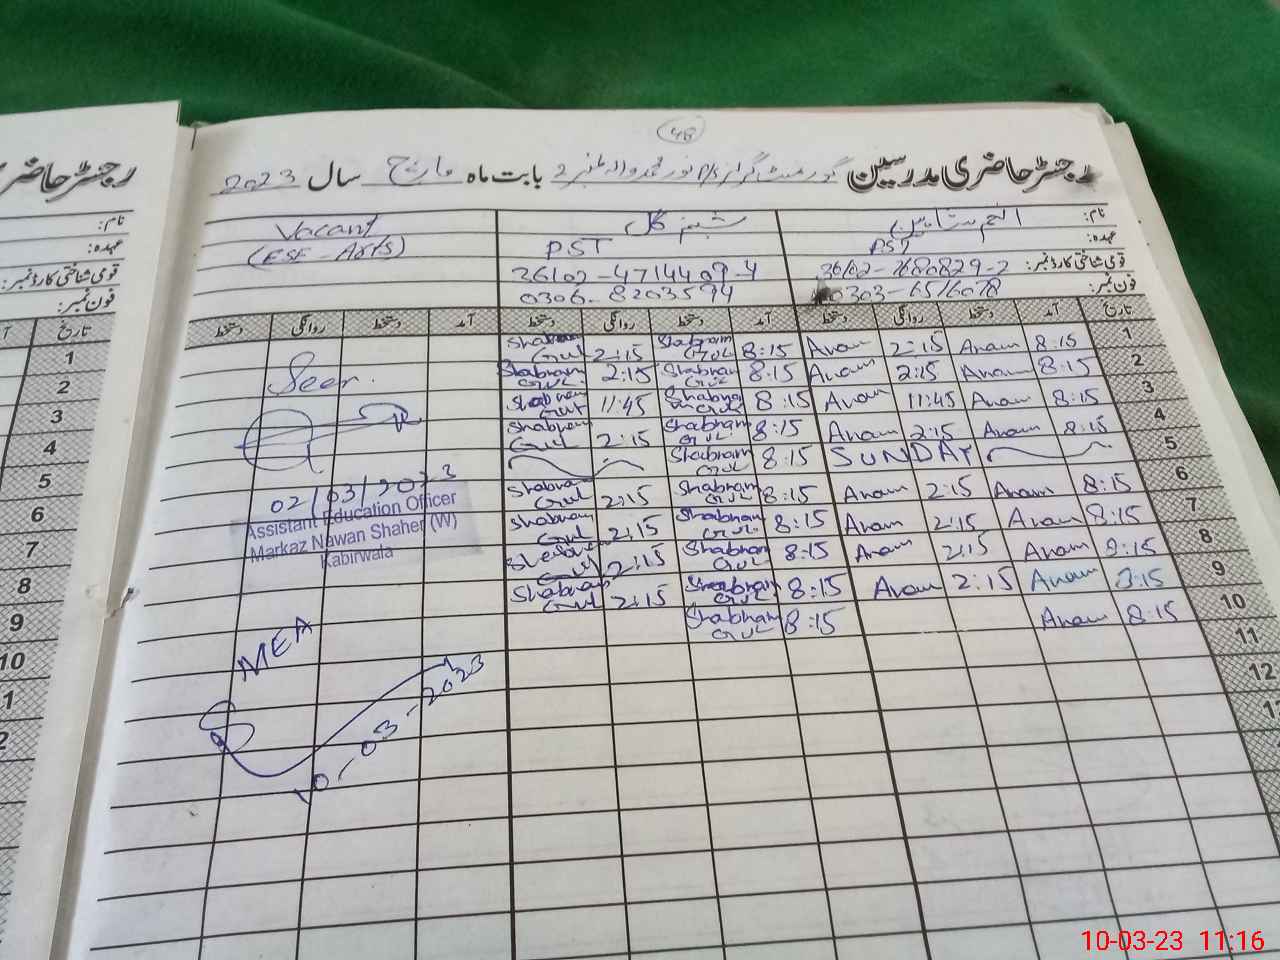 48
رجسٹر حاضری مدرسین گورنمنٹ گرلز P/S نور محمد والہ نمبر 2 بابت ماہ مارچ سال 2023
نام: شبنم گل Vacant
عہدہ: PST PST (ESE - Arts)
قومی شناختی کارڈ نمبر: 36102-7680829-2 36102-4714409-4
فون نمبر: 0303-6516078 0306-8203594
تاریخ آمد دستخط روانگی دستخط آمد دستخط روانگی دستخط آمد دستخط روانگی دستخط
1 8:15 Anam 2:15 Anam 8:15 Shabnam Gul 2:15 Shabnam Gul
2 8:15 Anam 2:15 Anam 8:15 Shabnam Gul 2:15 Shabnam Gul
3 8:15 Anam 11:45 Anam 8:15 Shabnam Gul 11:45 Shabnam Gul
4 8:15 Anam 2:15 Anam 8:15 Shabnam Gul 2:15 Shabnam Gul
5 SUNDAY 8:15 Shabnam Gul
6 8:15 Anam 2:15 Anam 8:15 Shabnam Gul 2:15 Shabnam Gul
7 8:15 Anam 2:15 Anam 8:15 Shabnam Gul 2:15 Shabnam Gul
8 8:15 Anam 2:15 Anam 8:15 Shabnam Gul 2:15 Shabnam Gul
9 8:15 Anam 2:15 Anam 8:15 Shabnam Gul 2:15 Shabnam Gul
10 8:15 Anam 8:15 Shabnam Gul
11
12
Seen.
02/03/2023
Assistant Education Officer
Markaz Nawan Shaher (W)
Kabirwala
MEA
10-03-2023
رجسٹر حاضری
نام:
عہدہ:
قومی شناختی کارڈ نمبر:
فون نمبر:
تاریخ
1
2
3
4
5
6
7
8
9
10
10-03-23 11:16